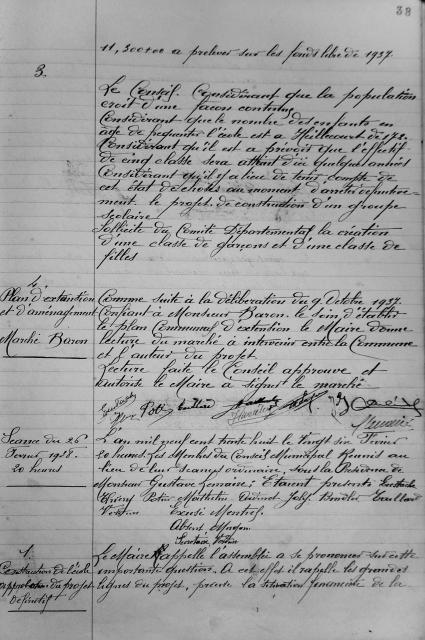 38
11,300+00 a prelever sur les fonds libre de 1937.
3.
Le Conseil. Considérant que la population
croit d'une façon continue,
Considérant que le nombre des enfants en
age de frequenter l'école est a Heillecourt de 172.
Considérant qu'il est a prévoir que l'effectif
de cinq classe sera atteint d'ici quelques années
Considérant qu'il y a lieu de tenir compte de
cet état de choses au moment d'
ment le projet de construction d'un groupe
scolaire
Sollicite du Comité Départemental la création
d'une classe de garçons et d'une classe de
filles
4.
Plan d'extention
et d'aménagement
Marché Baron
Comme suite à la déliberation du 9 Octobre 1937.
Confiant à Monsieur Baron. le soin d'établir
le plan Communal d'extention le Maire donne
lecture du marché à intervenir entre la Commune
et l'auteur du projet
Lecture faite le Conseil approuve et
autorise le Maire a signer le marché
Seance du 26
Fevrier 1938.
20 heures
L'an mil neuf cent trente huit le vingt six Fevrier
20 heures Les Membres du Conseil Municipal Reunis au
lieu de leur seances ordinaire, sous la Présidence de
Monsieur Gustave Lemaire; Etaient presents
Excusé
Albert
Secretaire
1.
Construction de l'école
approbation du projet
définitif
Le Maire rappelle l'assemblée a se prononcer sur cette
importante question. A cet effet il rapelle les grandes
lignes du projet, la situation financière de la